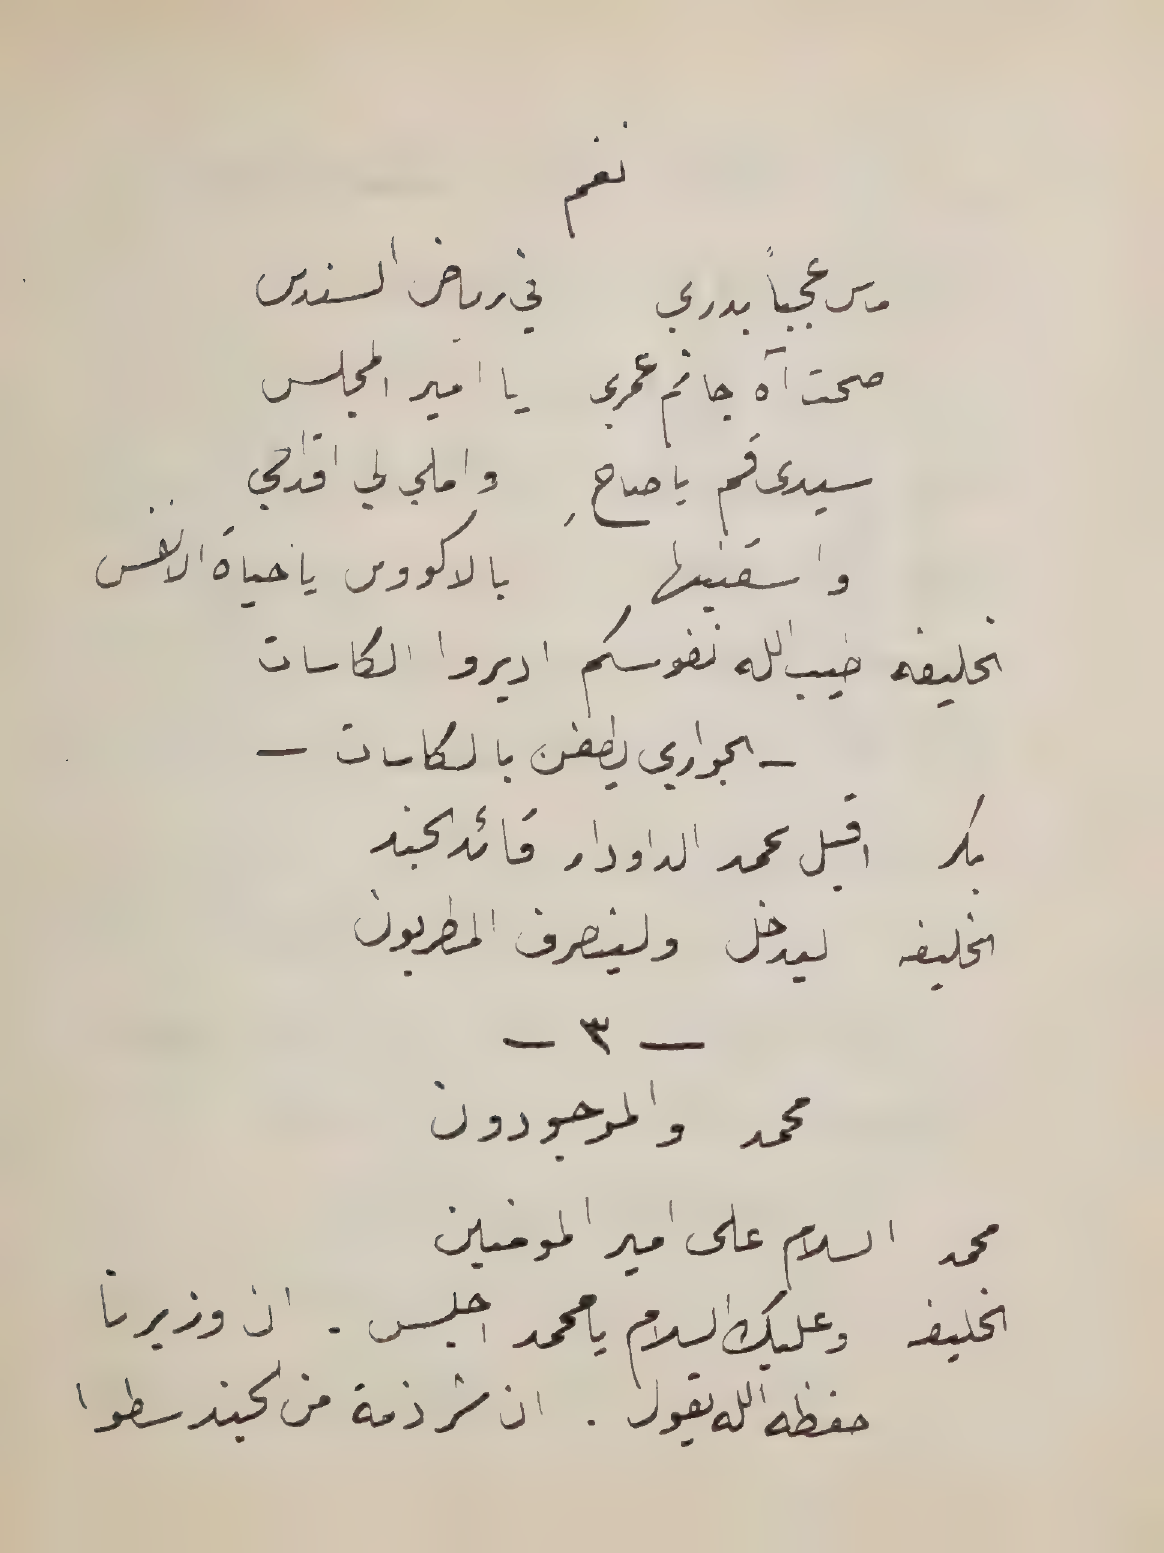 نغم
ماس عجباً بدري في رياض السندس
صحت آه جانم عمري يا امير المجلس
سيدي قم يا صاحِ واملي لي اقداحي
واسقنيها بالاكووس يا حياة الانفس
الخليفه طيب الله نفوسكم اديروا الكاسات
— الجواري يطفن بالكاسات —
بكر اقبل محمد الداودار قائد الجند
الخليفه ليدخل ولينصرف المطربون
— ٣ —
محمد والموجودون
محمد السلام على امير المومنين
الخليفه وعليك السلام يا محمد اجلس . ان وزيرنا
حفظه الله يقول . ان شرذمة من الجند سطوا